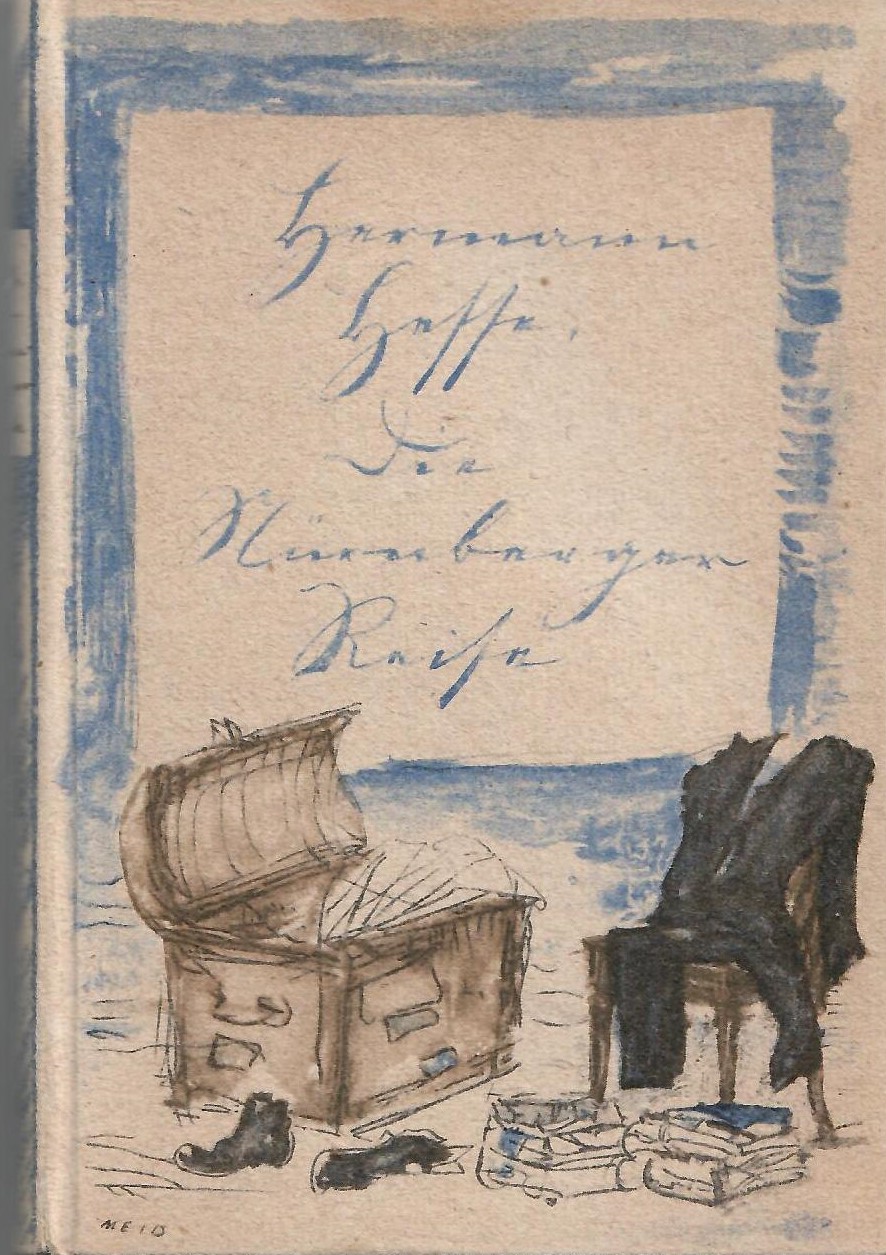 Hermann
Hesse.
Die
Nürnberger
Reise
MEID